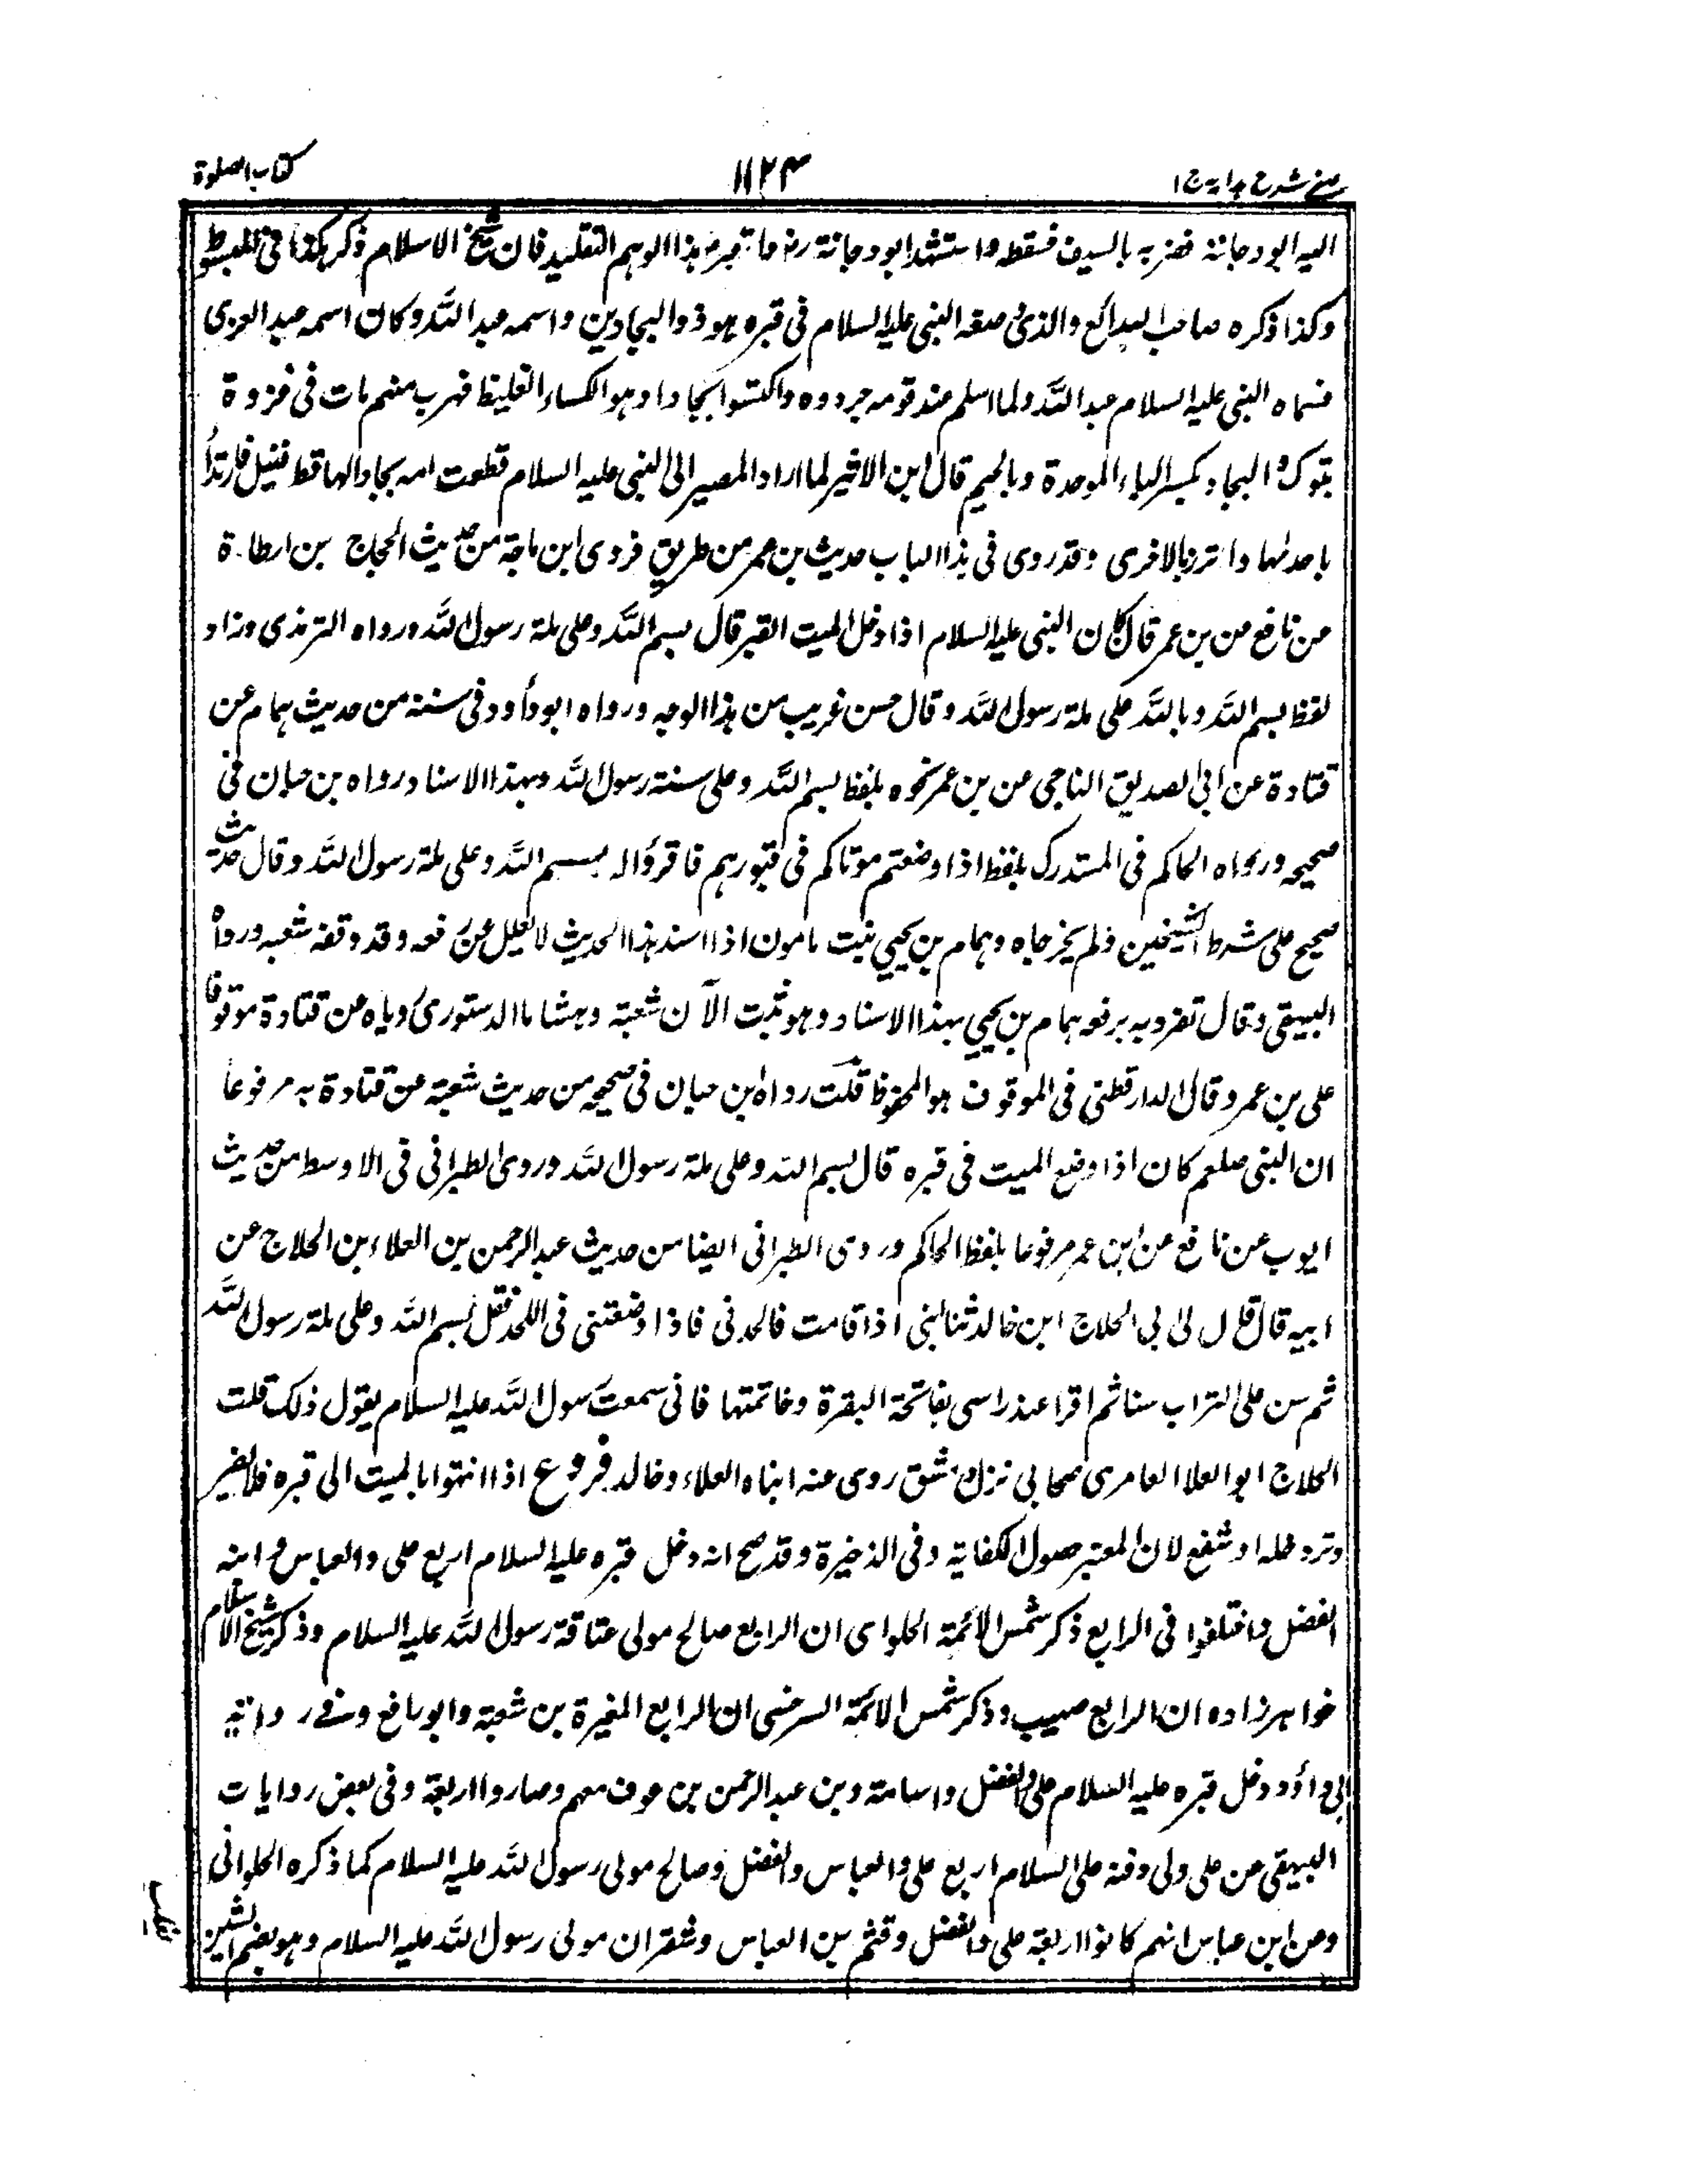 عینی شرح ہدایہ ج ۱
۱۱۲۴
کتاب الصلوة
الیہ ابو دجانة فضربه بالسیف فسقطه واستشهد ابو دجانة رض هذا الوهم التقلید فان شیخ الاسلام ذکر هکذا فی المبسوط
وکذا ذکره صاحب البدائع والذی وضعه النبی علیه السلام فی قبره هو ذو البجادین واسمه عبد الله وکان اسمه عبد العزی
فسماه النبی علیه السلام عبد الله ولما اسلم عند قومه جردوه واکتسوا بجادا وهو الکساء الغلیظ فهرب منهم مات فی غزوة
تبوک و البجاد بکسر الباء الموحدة وبالجیم قال ابن الاثیر لما اراد المصیر الی النبی علیه السلام قطعت امه بجادا لها قطعتین فارتدا
باحدٰهما واتزر بالاخری وقد روی فی هذا الباب حدیث بن عمر من طریق فروی ابن ماجة من حدیث الحجاج بن ارطاة
عن نافع عن بن عمر قال کان النبی علیه السلام اذا دخل المیت القبر قال بسم الله وعلی ملة رسول الله ورواه الترمذی وزاد
لفظ بسم الله وبالله علی ملة رسول الله وقال حسن غریب من هذا الوجه ورواه ابو داود فی سننه من حدیث همام عن
قتادة عن ابی الصدیق الناجی عن بن عمر نحوه بلفظ بسم الله وعلی سنة رسول الله وبهذا الاسناد رواه بن حبان فی
صحیحه ورواه الحاکم فی المستدرک بلفظ اذا وضعتم موتاکم فی قبورهم فاقرؤا له بسم الله وعلی ملة رسول الله وقال حدیث
صحیح علی شرط الشیخین ولم یخرجاه وهمام بن یحیی ثبت مامون اذا اسند هذا الحدیث لا یعلل عن رفعه وقد وقفه شعبه ورواه
البیهقی وقال تفرد به برفعه همام بن یحیی بهذا الاسناد وهو ثبت الا ان شعبة وهشاما الدستوری رویاه عن قتادة موقوفا
علی بن عمر وقال الدارقطنی فی الموقوف هو المحفوظ قلت رواه بن حبان فی صحیحه من حدیث شعبة عن قتادة به مرفوعا
ان النبی صلعم کان اذا وضع المیت فی قبره قال بسم الله وعلی ملة رسول الله وروی الطبرانی فی الاوسط من حدیث
ایوب عن نافع عن ابن عمر مرفوعا بلفظ الحاکم وروی الطبرانی ایضا من حدیث عبد الرحمن بن العلاء بن الحلاج عن
ابیه قال قال لی ابی الحلاج ابن خالد ثنا لبنی اذا قامت فالحدنی فاذا وضعتنی فی اللحد فقل بسم الله وعلی ملة رسول الله
ثم سن علی التراب سنا ثم اقرا عند راسی بفاتحة البقرة وخاتمتها فانی سمعت رسول الله علیه السلام یقول ذلک قلت
الحلاج ابو العلا العامری صحابی نزل دمشق روی عنه ابناه العلاء وخالد فروع اذا انتهوا بالمیت الی قبره فلا یضر
وتر دخله او شفع لان المعتبر حصول الکفایة وفی الذخیرة وقد صح انه دخل قبره علیه السلام اربع علی والعباس و ابنه
الفضل واختلفوا فی الرابع ذکر شمس الائمة الحلوای ان الرابع صالح مولی عتاقة رسول الله علیه السلام وذکر شیخ الاسلام
خواهر زاده ان الرابع صهیب وذکر شمس الائمة السرخسی ان الرابع المغیرة بن شعبة وابو رافع وفی روایة
ابی داؤد دخل قبره علیه السلام علی والفضل واسامة وبن عبد الرحمن بن عوف معهم وصاروا اربعة وفی بعض روایات
البیهقی عن علی ولی دفنه علیه السلام اربع علی والعباس والفضل وصالح مولی رسول الله علیه السلام کما ذکره الحلوانی
وعن ابن عباس انهم کانوا اربعة علی والفضل وقثم بن العباس وشقران مولی رسول الله علیه السلام وهو بضم الشین